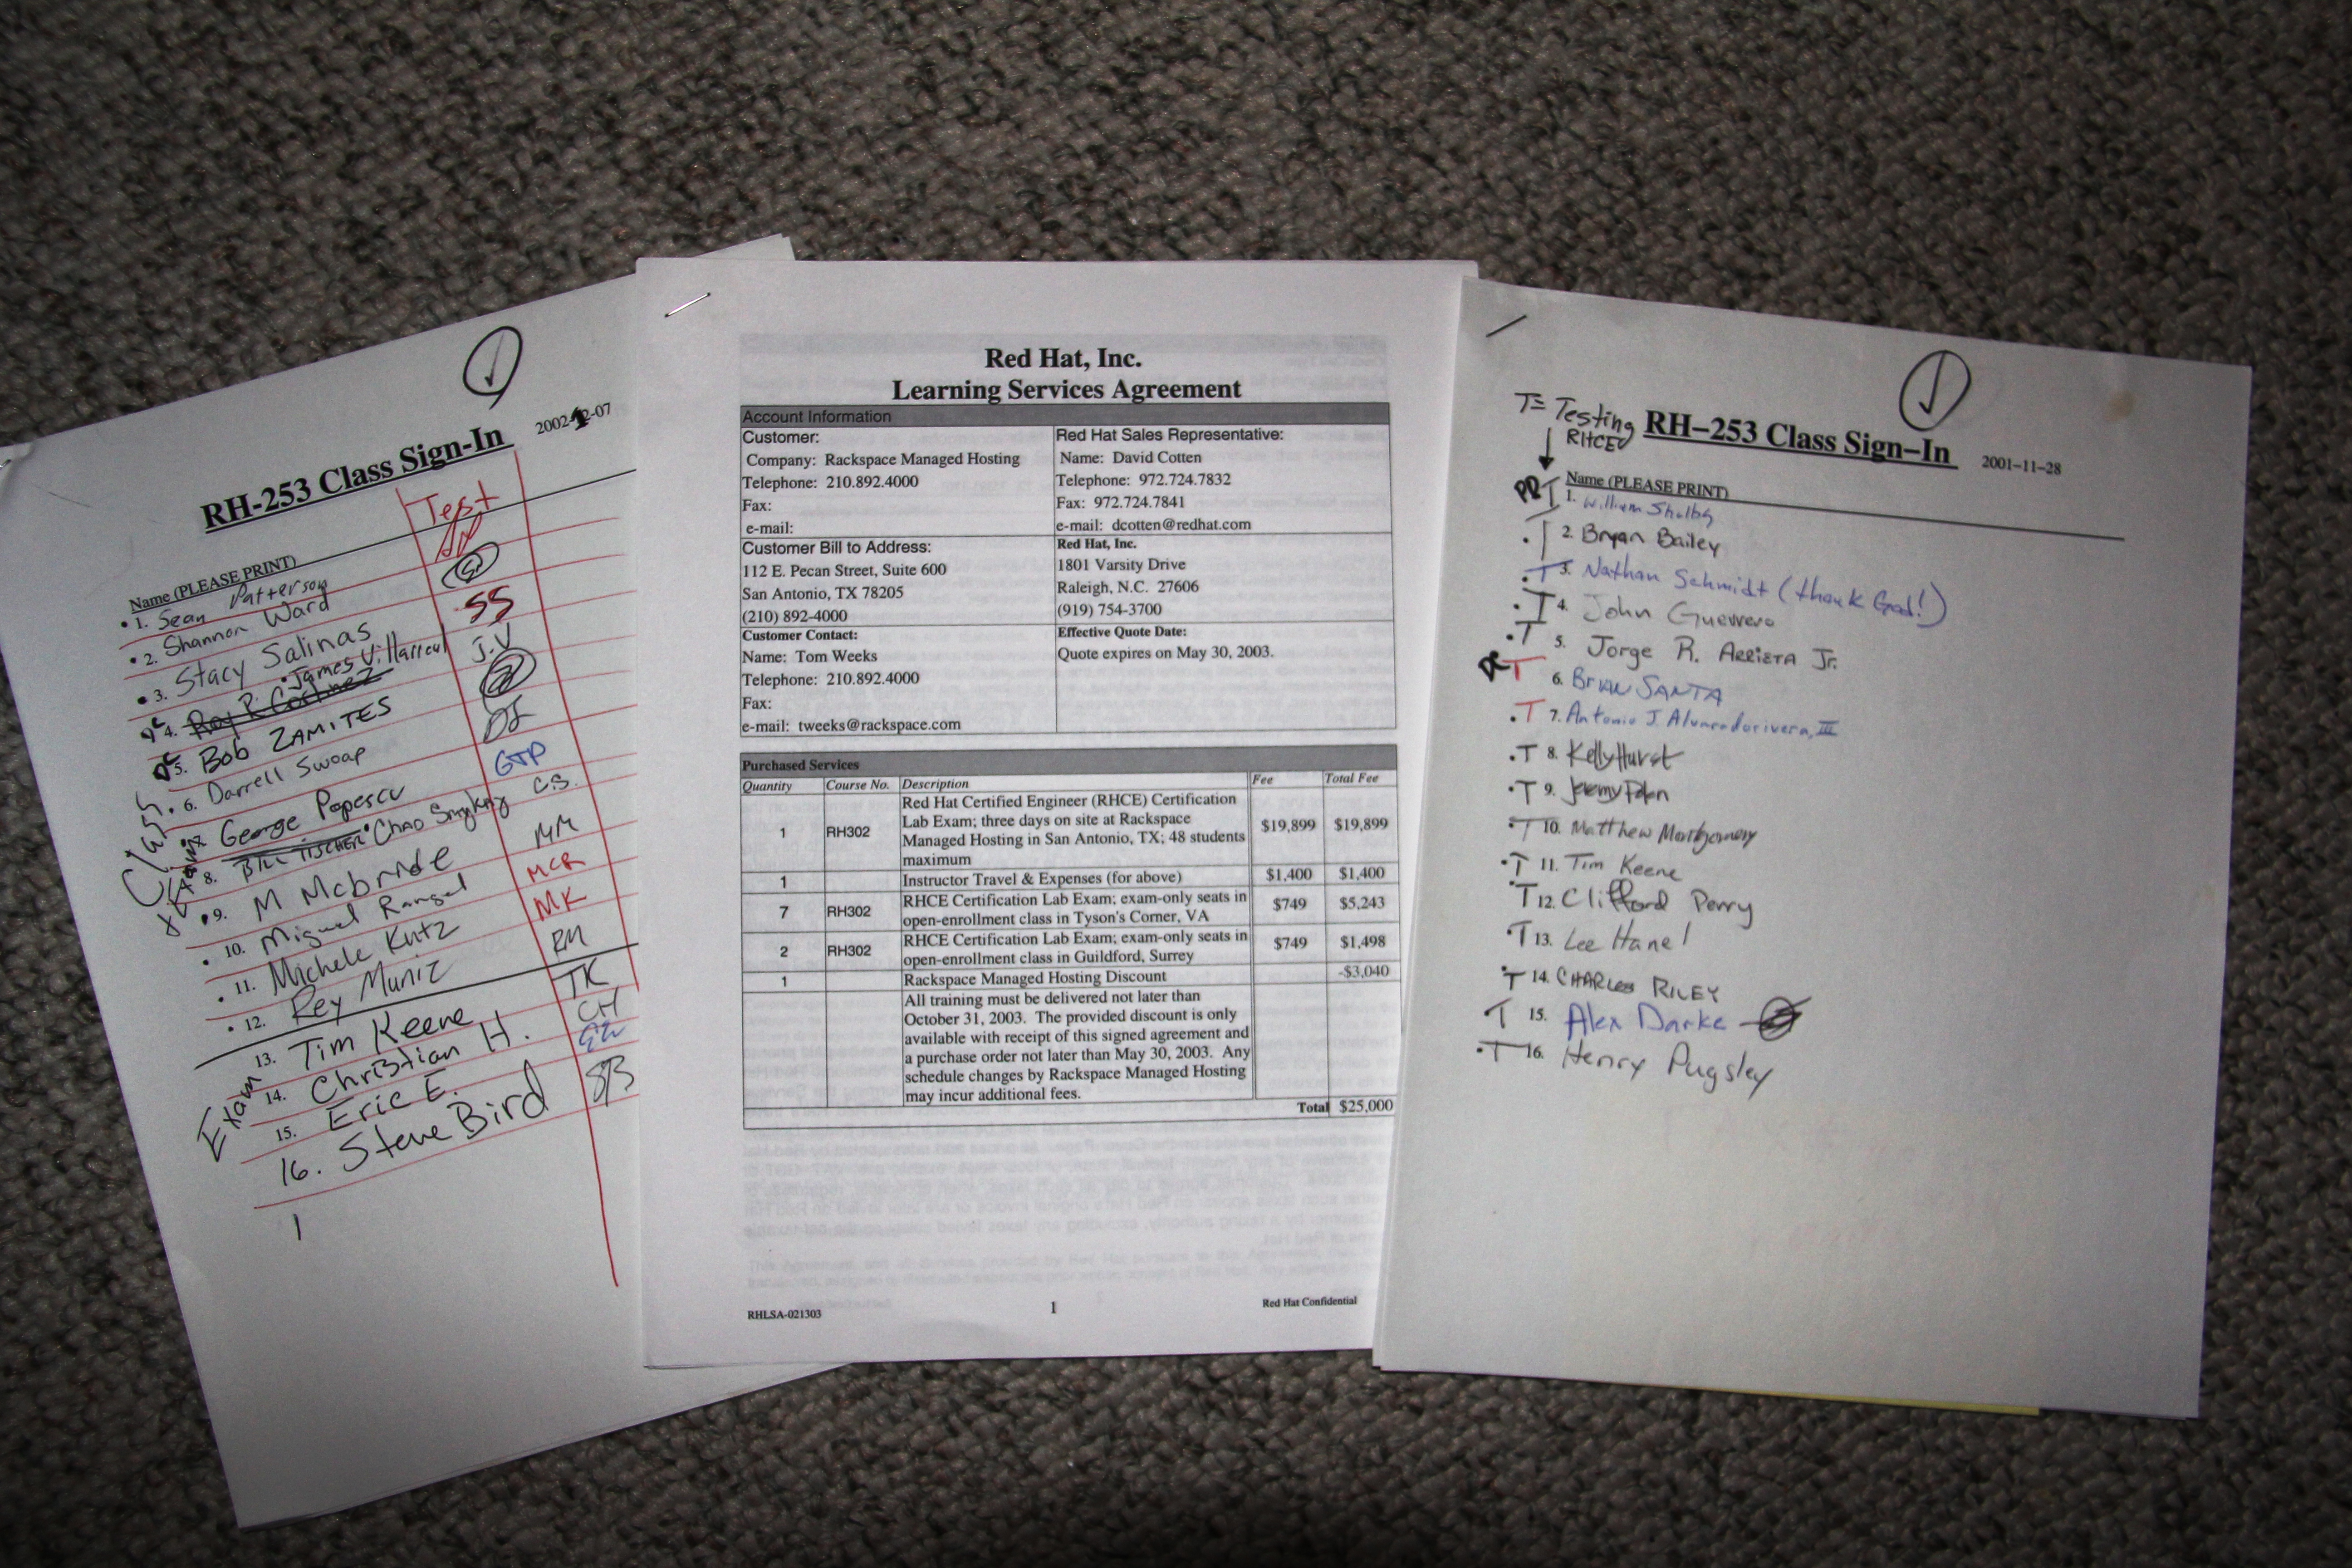 RH-253 Class Sign-In 2002-12-07
Test
Name (PLEASE PRINT)
1. Sean Patterson
2. Shannon Ward
3. Stacy Salinas SS
4. James Villarreal J.V
5. Bob ZAMITES
6. Darrell Swoap DS
George Popescu GTP
8. BILL TISCHER Chad Smykay C.S.
9. M Mcbride MM
10. Miguel Rangel MCR
11. Michele Kutz MK
12. Rey Muniz RM
13. Tim Keene TK
14. Christian H. CH
15. Eric E.
16. Steve Bird SB
Exam
Red Hat, Inc.
Learning Services Agreement
Account Information
Customer:
Company: Rackspace Managed Hosting
Telephone: 210.892.4000
Fax:
e-mail:
Red Hat Sales Representative:
Name: David Cotten
Telephone: 972.724.7832
Fax: 972.724.7841
e-mail: dcotten@redhat.com
Customer Bill to Address:
112 E. Pecan Street, Suite 600
San Antonio, TX 78205
(210) 892-4000
Red Hat, Inc.
1801 Varsity Drive
Raleigh, N.C. 27606
(919) 754-3700
Customer Contact:
Name: Tom Weeks
Telephone: 210.892.4000
Fax:
e-mail: tweeks@rackspace.com
Effective Quote Date:
Quote expires on May 30, 2003.
Purchased Services
Quantity Course No. Description Fee Total Fee
Red Hat Certified Engineer (RHCE) Certification
1 RH302 Lab Exam; three days on site at Rackspace $19,899 $19,899
Managed Hosting in San Antonio, TX; 48 students
maximum
1 Instructor Travel & Expenses (for above) $1,400 $1,400
7 RH302 RHCE Certification Lab Exam; exam-only seats in $749 $5,243
open-enrollment class in Tyson's Corner, VA
2 RH302 RHCE Certification Lab Exam; exam-only seats in $749 $1,498
open-enrollment class in Guildford, Surrey
1 Rackspace Managed Hosting Discount -$3,040
All training must be delivered not later than
October 31, 2003. The provided discount is only
available with receipt of this signed agreement and
a purchase order not later than May 30, 2003. Any
schedule changes by Rackspace Managed Hosting
may incur additional fees.
Total $25,000
RHLSA-021303 1 Red Hat Confidential
T= Testing
RHCE
RH-253 Class Sign-In 2001-11-28
Name (PLEASE PRINT)
T 1. William Shelby
T 2. Bryan Bailey
T 3. Nathan Schmidt (thank God!)
T 4. John Guerrero
T 5. Jorge R. ARRIETA Jr.
T 6. BRIAN SANTA
T 7. Antonio J. Alvaradorivera, III
T 8. Kelly Hurst
T 9. Jeremy
T 10. Matthew Montgomery
T 11. Tim Keene
T 12. Clifford Perry
T 13. Lee Hanel
T 14. CHARLES RILEY
T 15. Alex Darke
T 16. Henry Pugsley